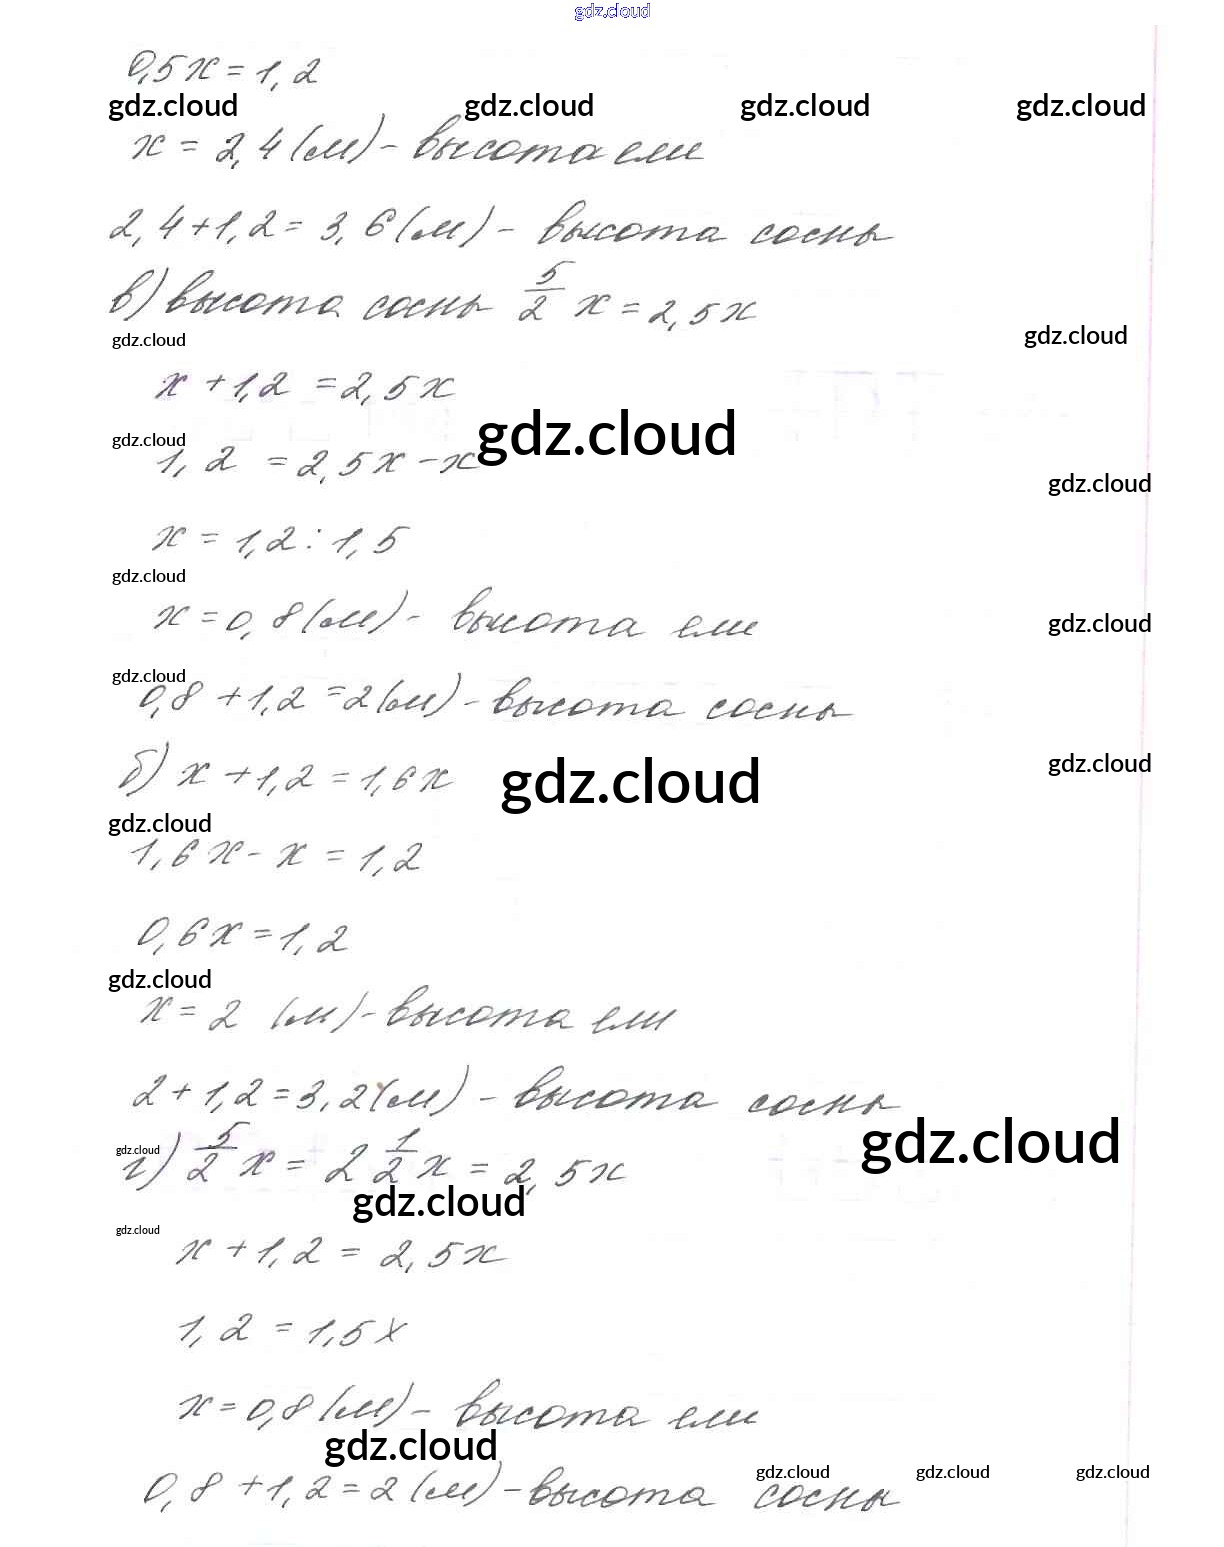 gdz.cloud
0,5x = 1,2
gdz.cloud gdz.cloud gdz.cloud gdz.cloud
x = 2,4 (м) - высота ели
2,4 + 1,2 = 3,6 (м) - высота сосны
в) высота сосны 5/2 x = 2,5x
gdz.cloud gdz.cloud
x + 1,2 = 2,5x
gdz.cloud gdz.cloud
1,2 = 2,5x - x
gdz.cloud
x = 1,2 : 1,5
gdz.cloud
x = 0,8 (м) - высота ели
gdz.cloud
gdz.cloud
0,8 + 1,2 = 2 (м) - высота сосны
б) x + 1,2 = 1,6x
gdz.cloud gdz.cloud
gdz.cloud
1,6x - x = 1,2
0,6x = 1,2
gdz.cloud
x = 2 (м) - высота ели
2 + 1,2 = 3,2 (м) - высота сосны
gdz.cloud gdz.cloud
г) 5/2 x = 2 1/2 x = 2,5x
gdz.cloud
gdz.cloud
x + 1,2 = 2,5x
1,2 = 1,5x
x = 0,8 (м) - высота ели
gdz.cloud
gdz.cloud gdz.cloud gdz.cloud
0,8 + 1,2 = 2 (м) - высота сосны